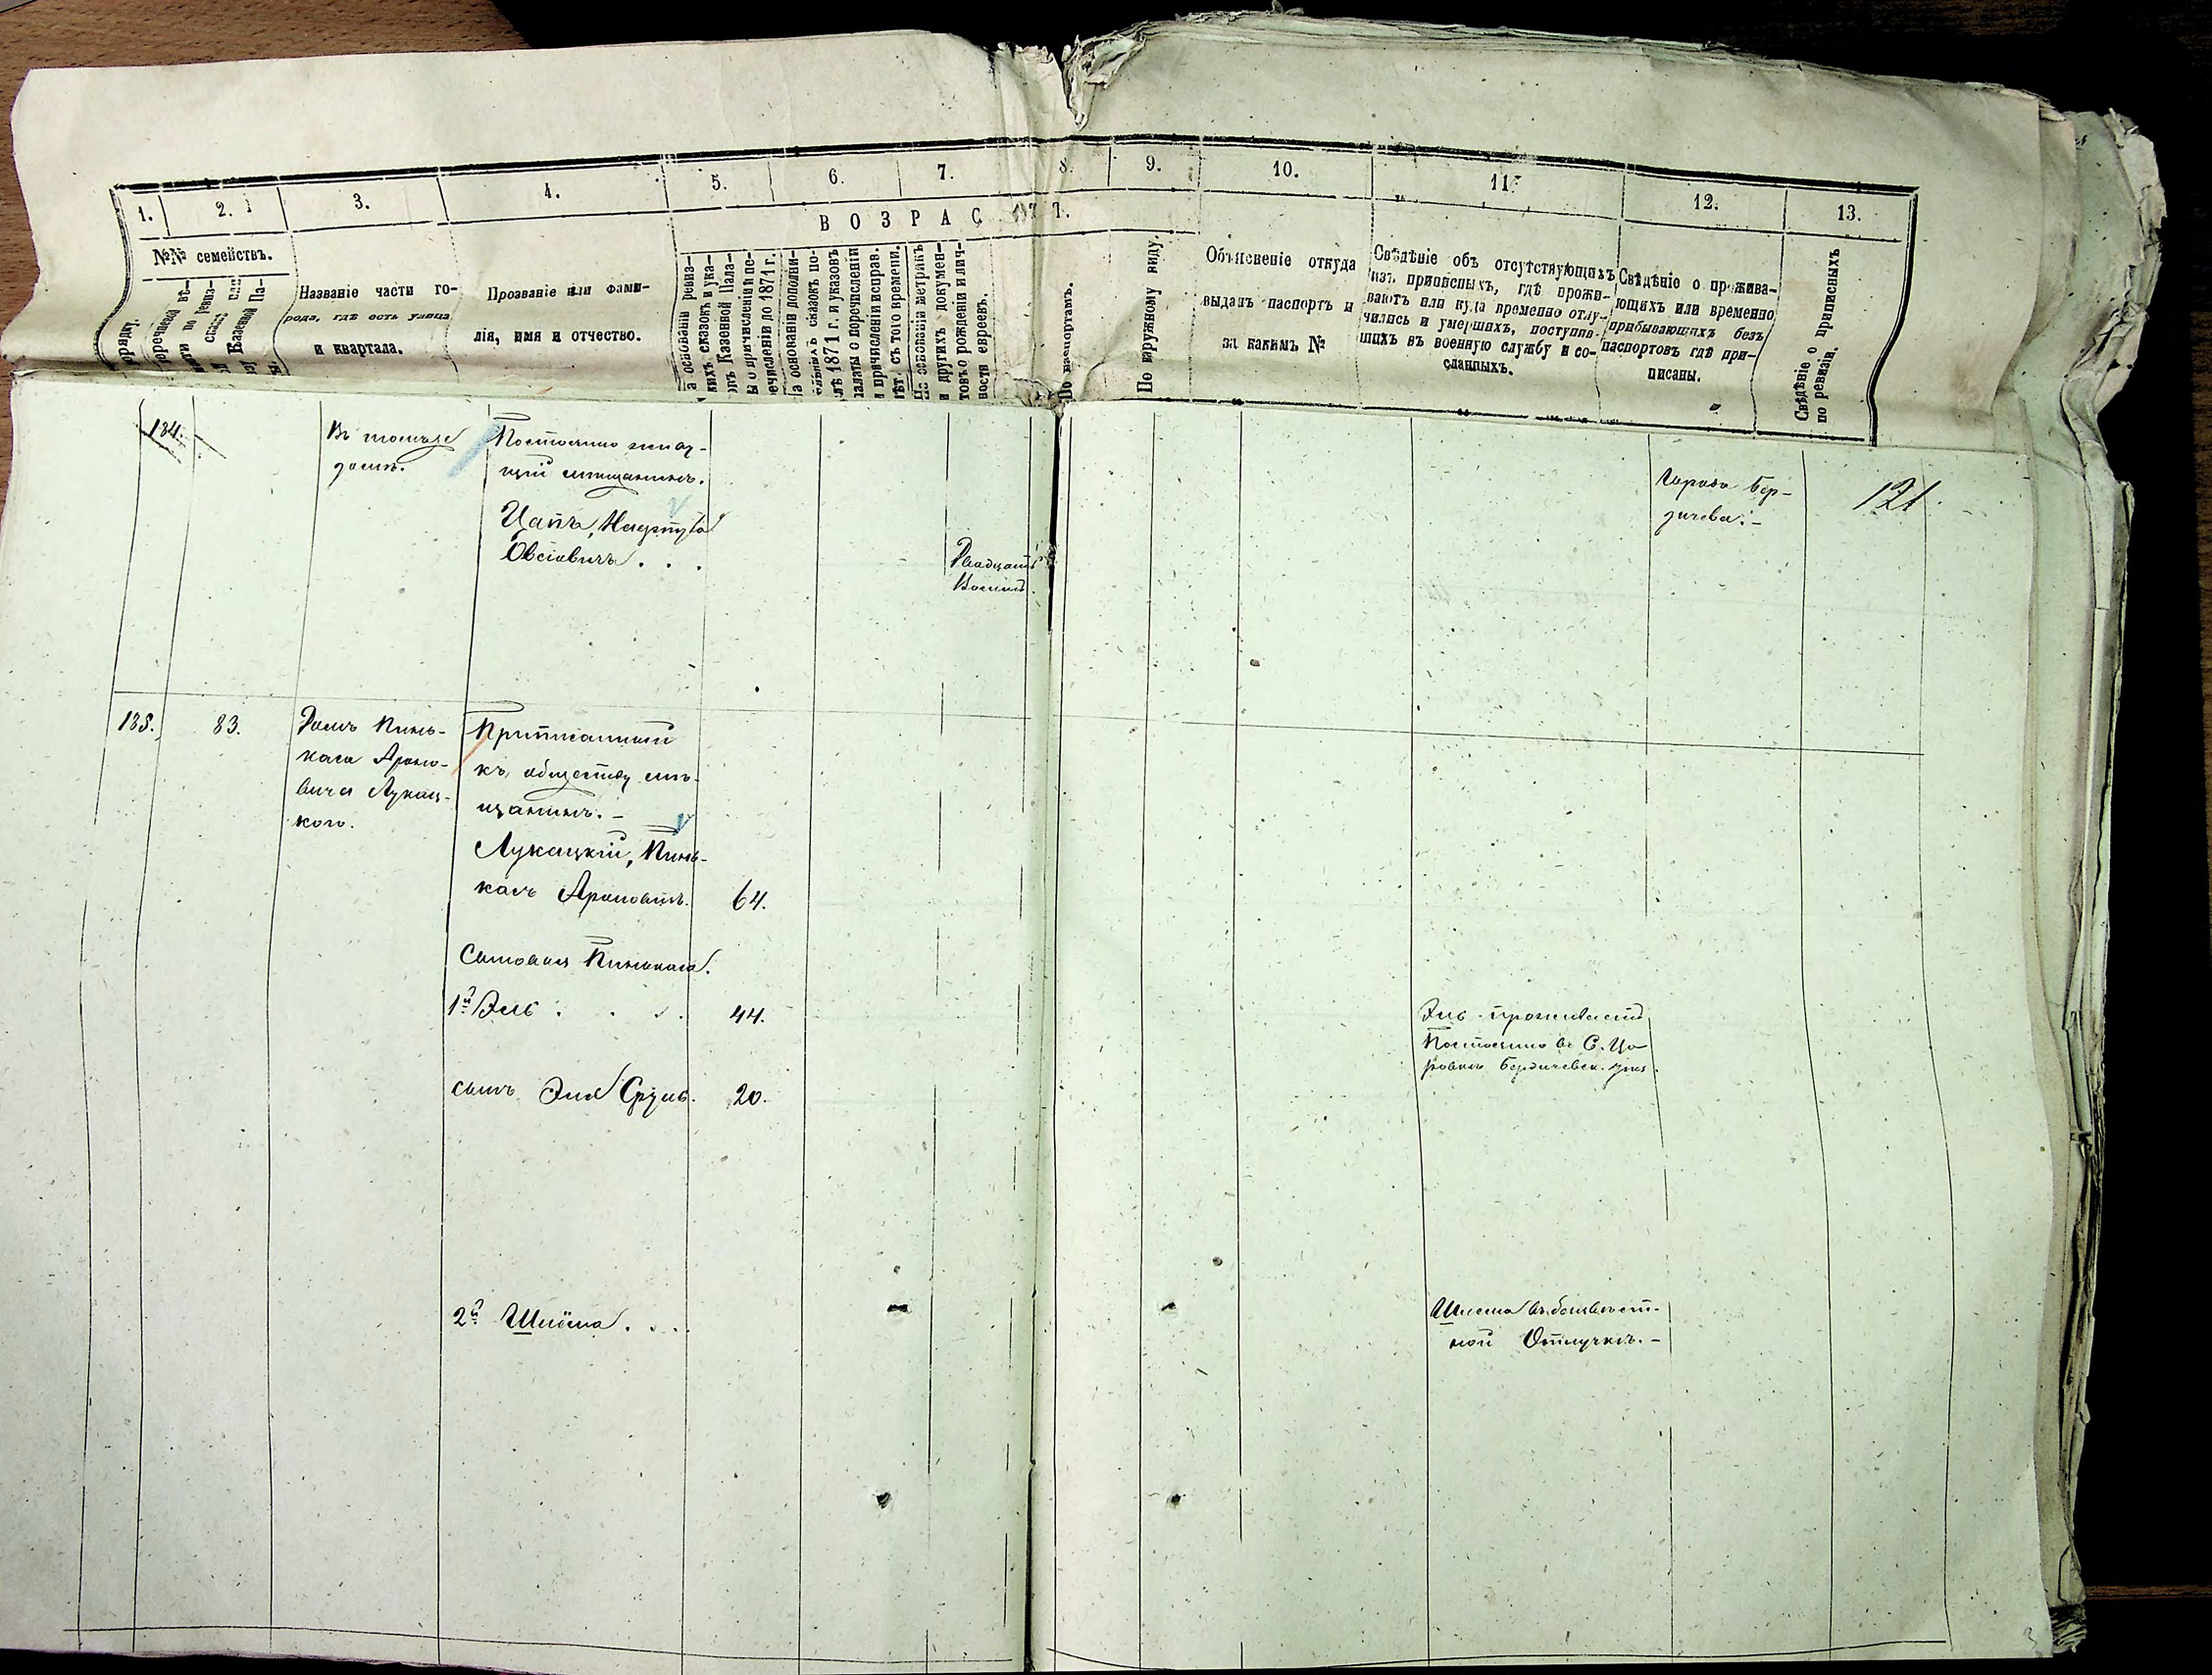 1.
2.
3.
4.
5.
6.
7.
8.
9.
10.
11.
12.
13.
ВОЗРАСТ
№№ семействъ.
Названіе части го-
рода, гдѣ есть улица
и квартала.
Прозваніе или фами-
лія, имя и отчество.
а основаніи ревиз-
кихъ сказокъ и ука-
Казенной Пала-
о причисленіи и пе-
речисленіи до 1871 г.
а основаніи дополни-
сказокъ по-
1871 г. и указовъ
палаты о перечисленіи
и причисленіи исправ.
съ того времени.
По основаніи метрикъ
и другихъ докумен-
товъ о рожденіи и лич-
ности евреевъ.
По паспортамъ.
По наружному виду.
Объясненіе откуда
выданъ паспортъ и
за какимъ №
Свѣдѣніе объ отсутствующихъ
изъ приписныхъ, гдѣ прожи-
ваютъ или куда временно отлу-
чились и умершихъ, поступив-
шихъ въ военную службу и со-
сланныхъ.
Свѣдѣніе о прожива-
ющихъ или временно
прибывающихъ безъ
паспортовъ гдѣ при-
писаны.
Свѣдѣніе о приписныхъ
по ревизіи.
134.
Въ томъ же
домѣ.
Постоянно живу-
щій мѣщанинъ.
Цапъ,
Овсіовичъ . . .
Двадцать
Восемь.
Города Бер-
дичева. –
121
135.
83.
Домъ Пинь-
каса Ароно-
вича Лукац-
кого.
Приписанный
къ обществу мѣ-
щанинъ. –
Лукацкій, Пинь-
касъ Ароновичъ.
64.
Сыновья Пинькаса.
1й Эль . . .
44.
Эль проживаетъ
Постоянно въ С.
Бердичевск. уѣз.
сынъ Эля Сруль.
20.
2й Шлёма . . .
Шлема въ безвѣст-
ной Отлучкѣ. –